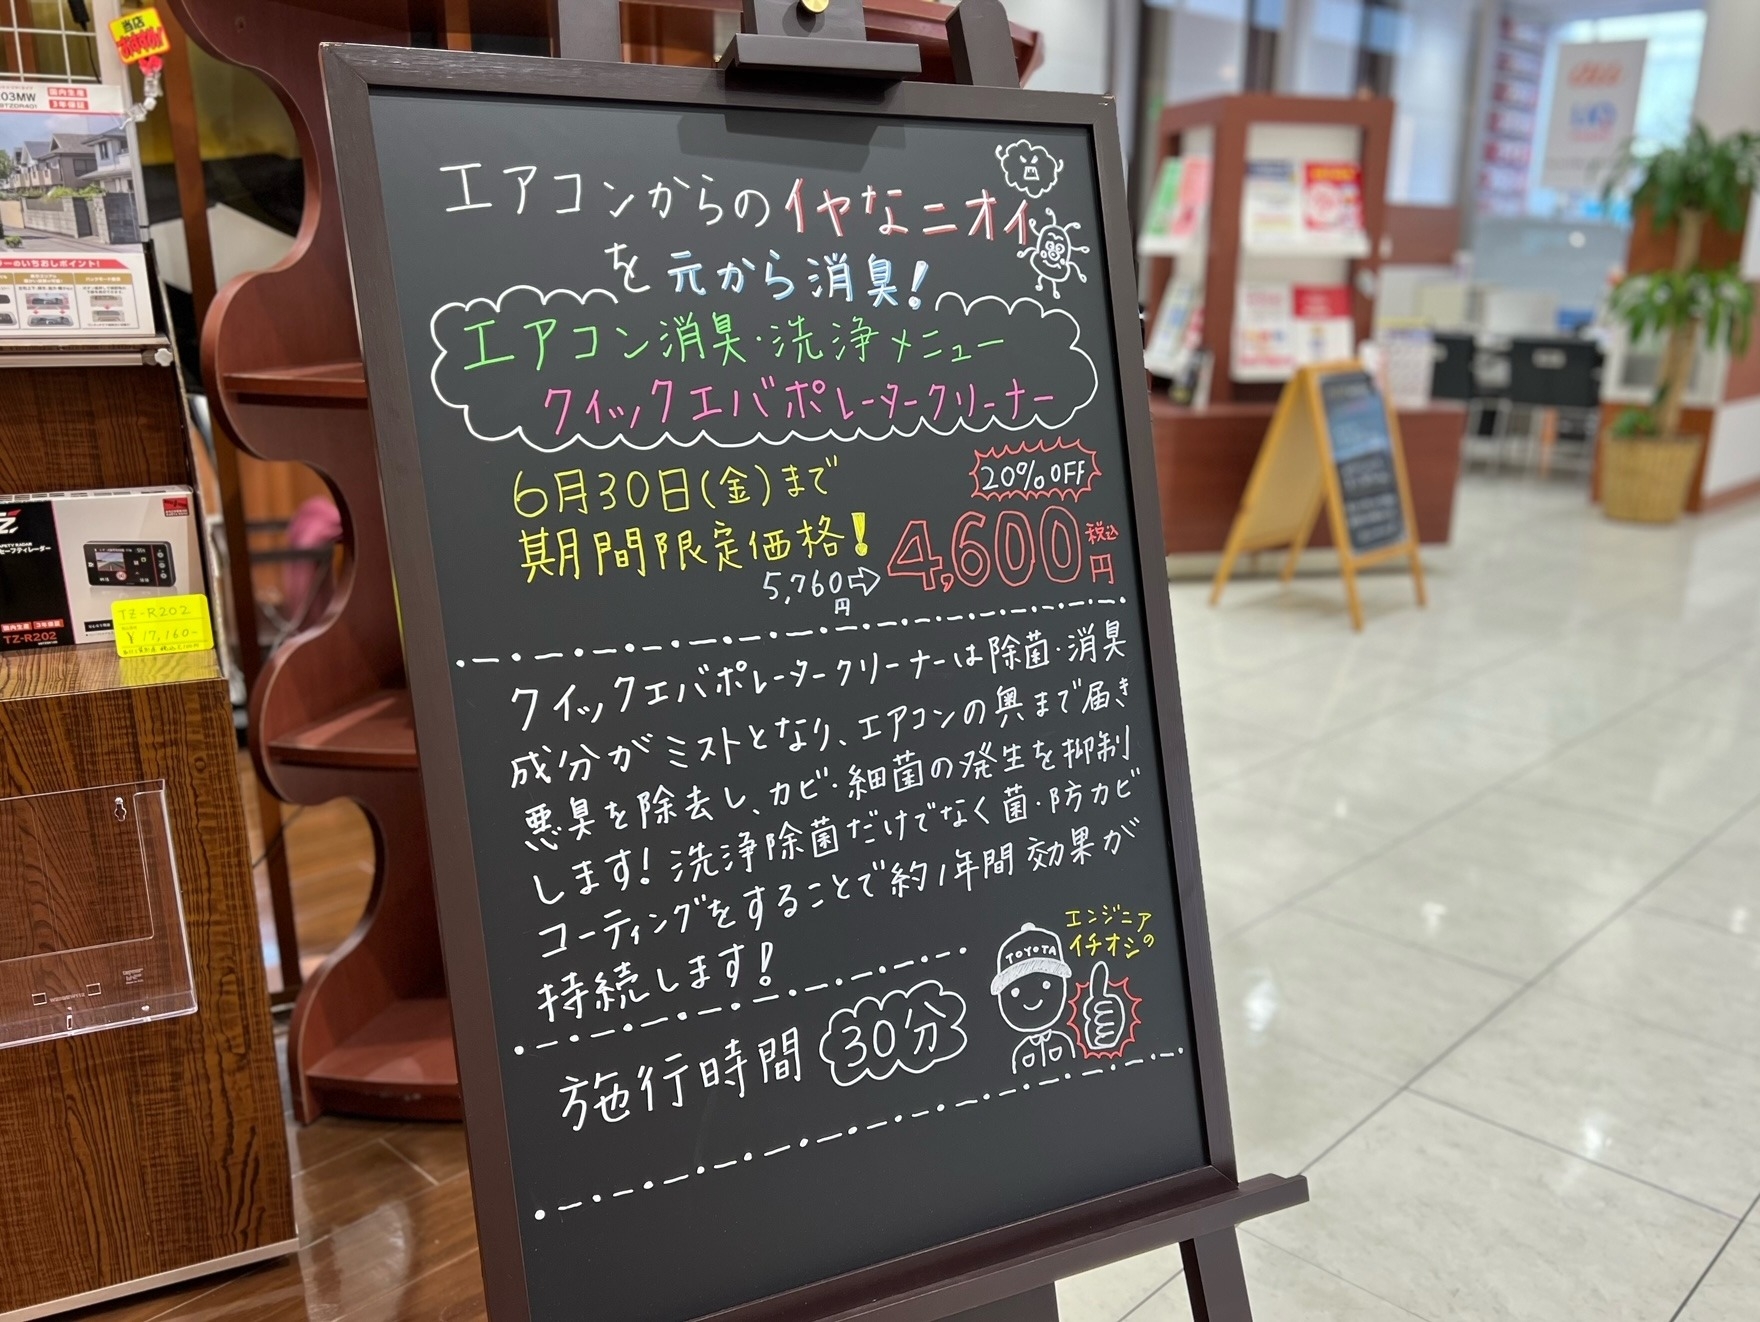 エアコンからのイヤなニオイ
を元から消臭!
エアコン消臭・洗浄メニュー
クイックエバポレータークリーナー
6月30日(金)まで
期間限定価格!
20%OFF
5,760円⇨4,600円税込
クイックエバポレータークリーナーは除菌・消臭
成分がミストとなり、エアコンの奥まで届き
悪臭を除去し、カビ・細菌の発生を抑制
します!洗浄除菌だけでなく菌・防カビ
コーティングをすることで約1年間効果が
持続します!
エンジニア
イチオシの
TOYOTA
施行時間 30分
当店
おすすめ!
203MW
国内生産
3年保証
ーのいちおしポイント!
セーフティレーダー
国内生産 3年保証
TZ-R202
TZ-R202
¥17,160-